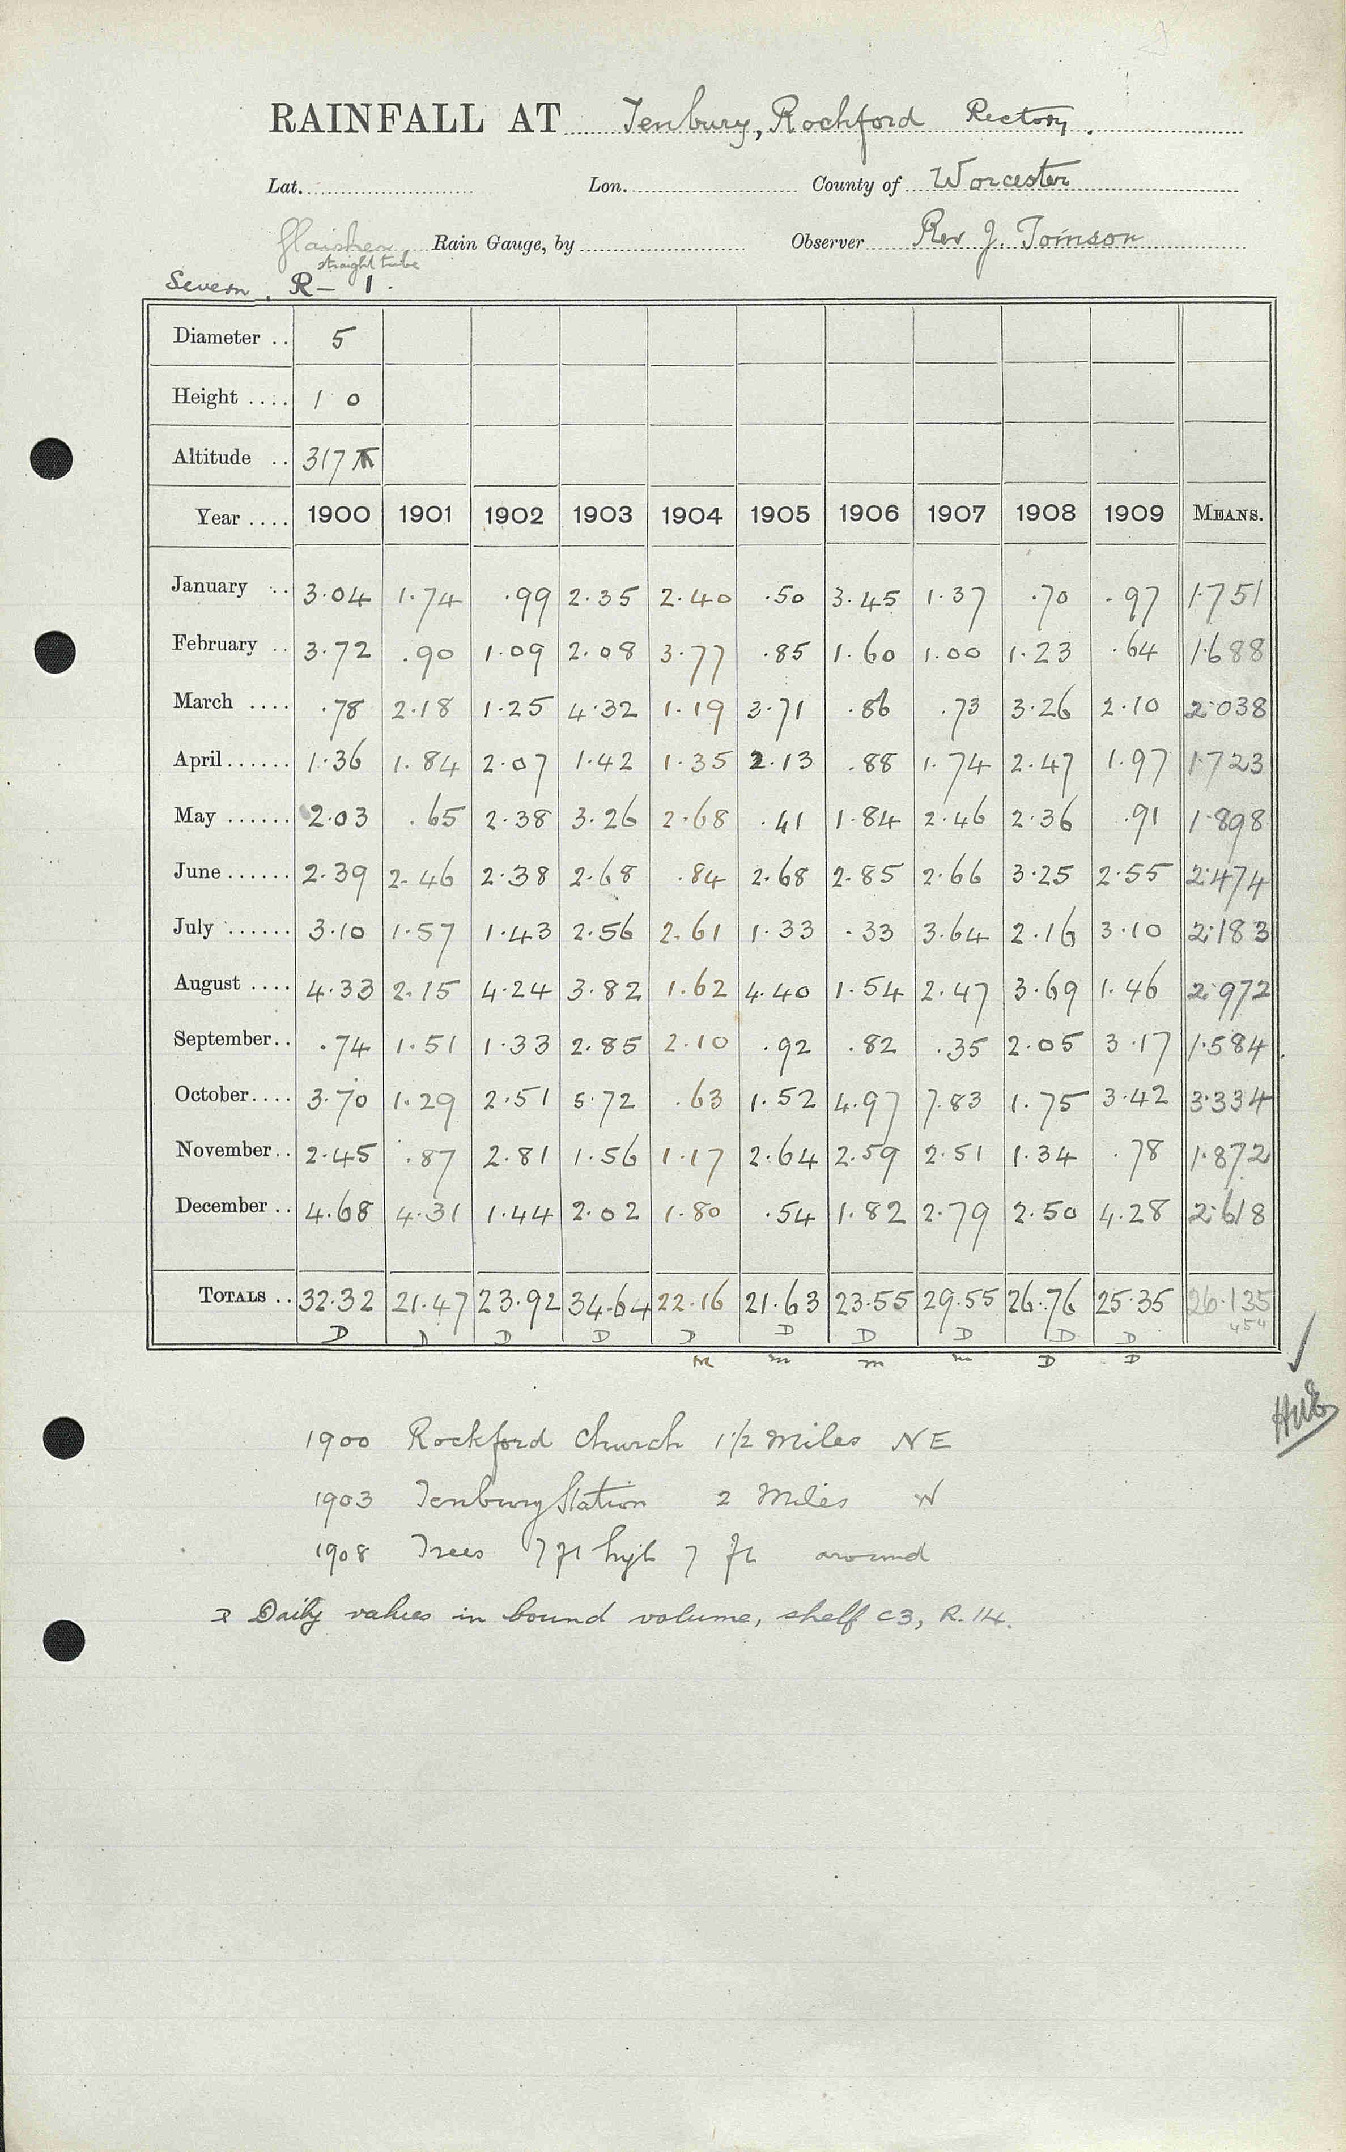 RAINFALL AT Tenbury, Rochford Rectory.
Lat. Lon. County of Worcester
Glaisher Rain Gauge, by Observer Rev J. Tomson
straight tube
Severn. R- 1.
Diameter .. 5
Height .... 1 0
Altitude .. 317
Year .... 1900 1901 1902 1903 1904 1905 1906 1907 1908 1909 MEANS.
January .. 3.04 1.74 .99 2.35 2.40 .50 3.45 1.37 .70 .97 1.751
February .. 3.72 .90 1.09 2.08 3.77 .85 1.60 1.00 1.23 .64 1.688
March .... .78 2.18 1.25 4.32 1.19 3.71 .86 .73 3.26 2.10 2.038
April...... 1.36 1.84 2.07 1.42 1.35 2.13 .88 1.74 2.47 1.97 1.723
May ...... 2.03 .65 2.38 3.26 2.68 .41 1.84 2.46 2.36 .91 1.898
June...... 2.39 2.46 2.38 2.68 .84 2.68 2.85 2.66 3.25 2.55 2.474
July ...... 3.10 1.57 1.43 2.56 2.61 1.33 .33 3.64 2.16 3.10 2.183
August .... 4.33 2.15 4.24 3.82 1.62 4.40 1.54 2.47 3.69 1.46 2.972
September.. .74 1.51 1.33 2.85 2.10 .92 .82 .35 2.05 3.17 1.584
October.... 3.70 1.29 2.51 5.72 .63 1.52 4.97 7.83 1.75 3.42 3.334
November.. 2.45 .87 2.81 1.56 1.17 2.64 2.59 2.51 1.34 .78 1.872
December .. 4.68 4.31 1.44 2.02 1.80 .54 1.82 2.79 2.50 4.28 2.618
TOTALS .. 32.32 21.47 23.92 34.64 22.16 21.63 23.55 29.55 26.76 25.35 26.135
D D D D D D D D D D 454
m m m m D D
1900 Rockford Church 1 1/2 Miles NE
1903 Tenbury Station 2 Miles W
1908 Trees 7 ft high 7 ft around
D Daily values in bound volume, shelf C3, R.14.